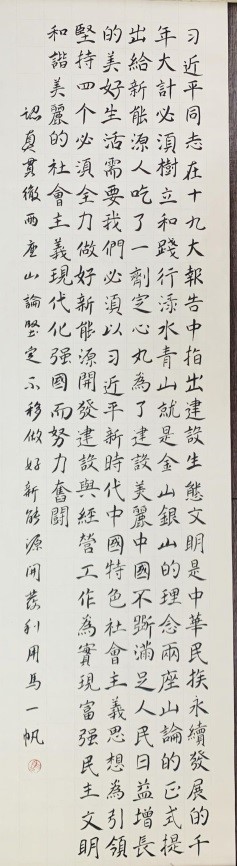 习近平同志在十九大報告中指出建設生態文明是中華民族永續發展的千
年大計必須樹立和踐行渌水青山就是金山銀山的理念兩座山論的正式提
出給新能源人吃了一劑定心丸為了建設美麗中國不斷滿足人民日益增長
的美好生活需要我們必須以习近平新時代中國特色社會主義思想為引領
堅持四个必須全力做好新能源開發建設與經營工作為實現富强民主文明
和諧美麗的社會主義現代化强國而努力奮鬪
認真貫徹兩座山論堅定不移做好新能源開發利用馬一帆